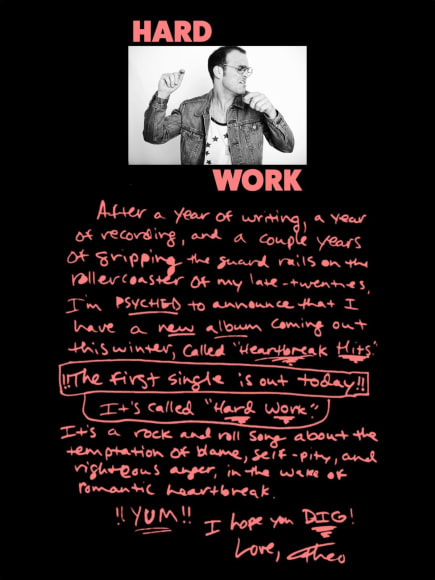 HARD
WORK
After a year of writing, a year
of recording, and a couple years
of gripping the guard rails on the
rollercoaster of my late-twenties,
I'm PSYCHED to announce that I
have a new album coming out
this winter, called "Heartbreak Hits"
!!The first single is out today!!
It's called "Hard Work"
It's a rock and roll song about the
temptation of blame, self-pity, and
righteous anger, in the wake of
romantic heartbreak.
!!YUM!! I hope you DIG!
Love, Theo